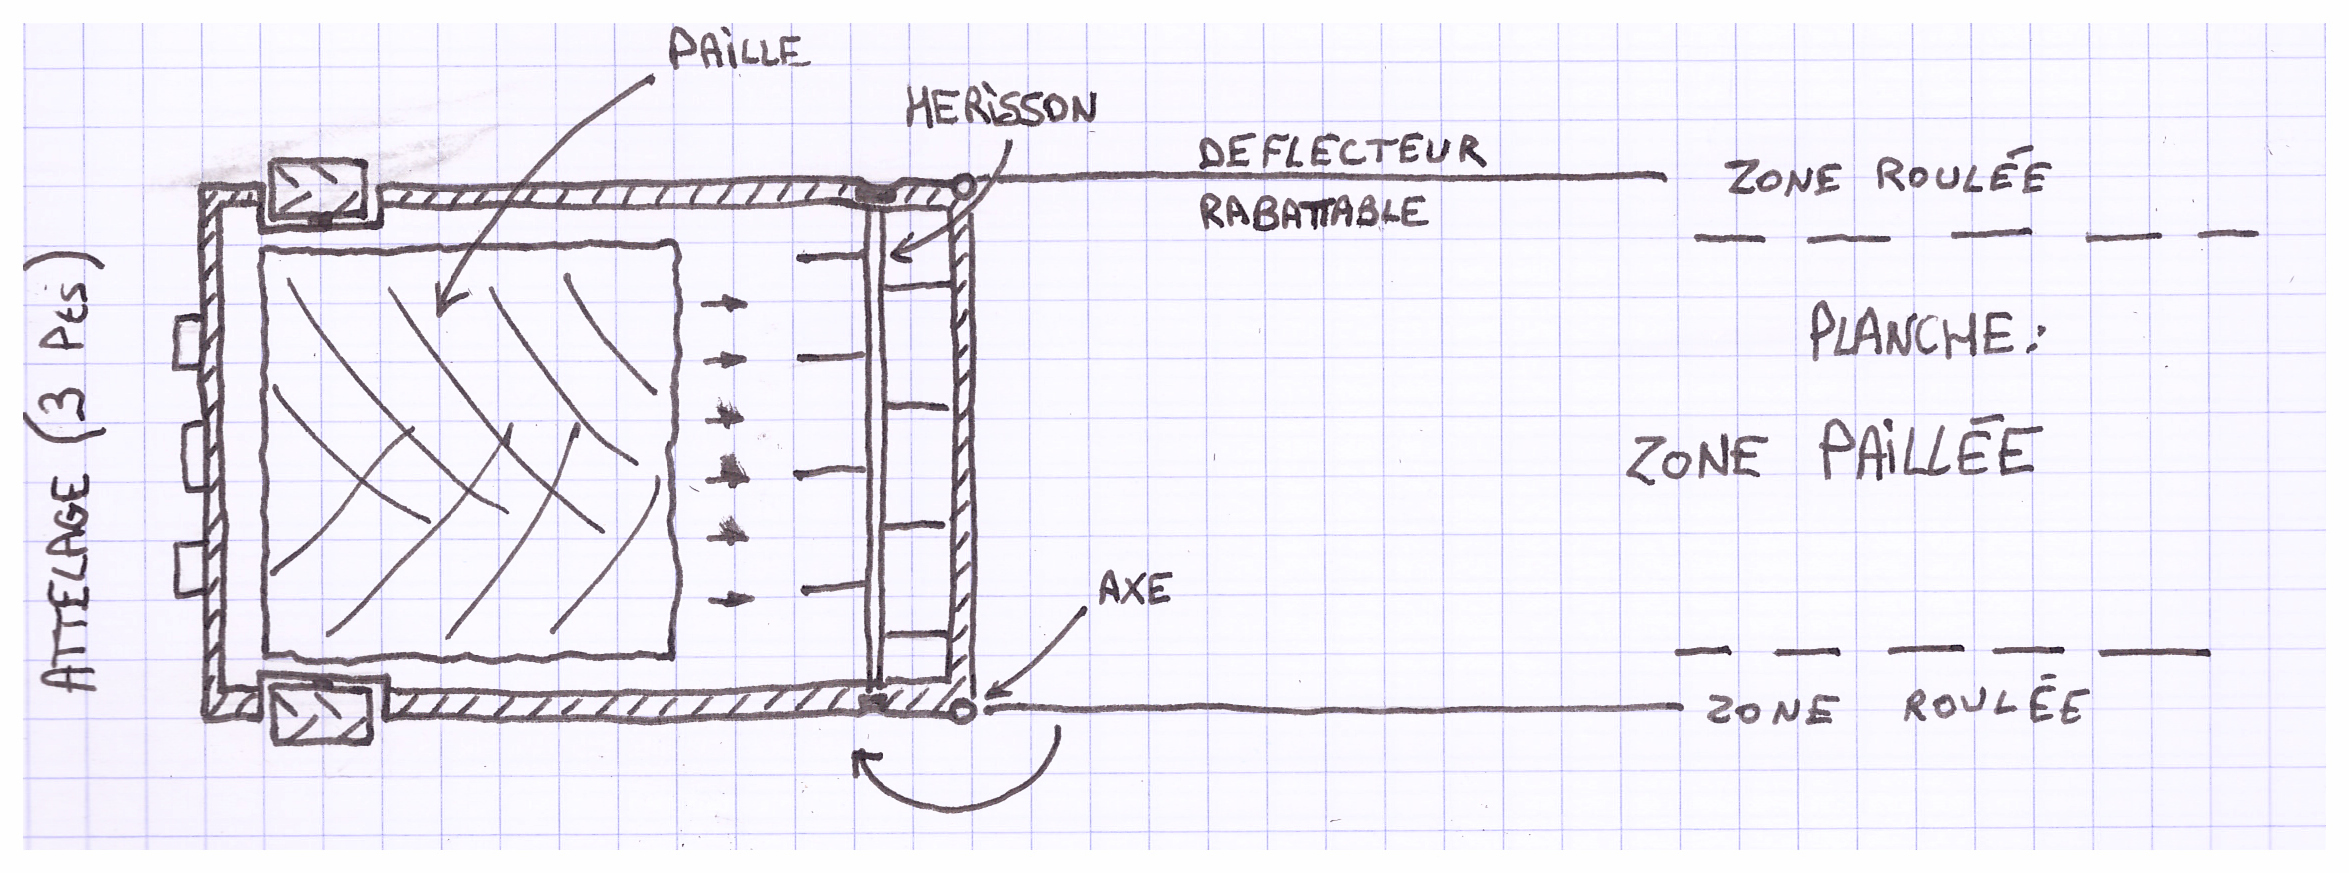 PAiLLE
HERiSSON
DEFLECTEUR
RABATTABLE
ZONE ROULÉE
ATTELAGE (3 Pts)
PLANCHE:
ZONE PAiLLÉE
AXE
ZONE ROULÉE